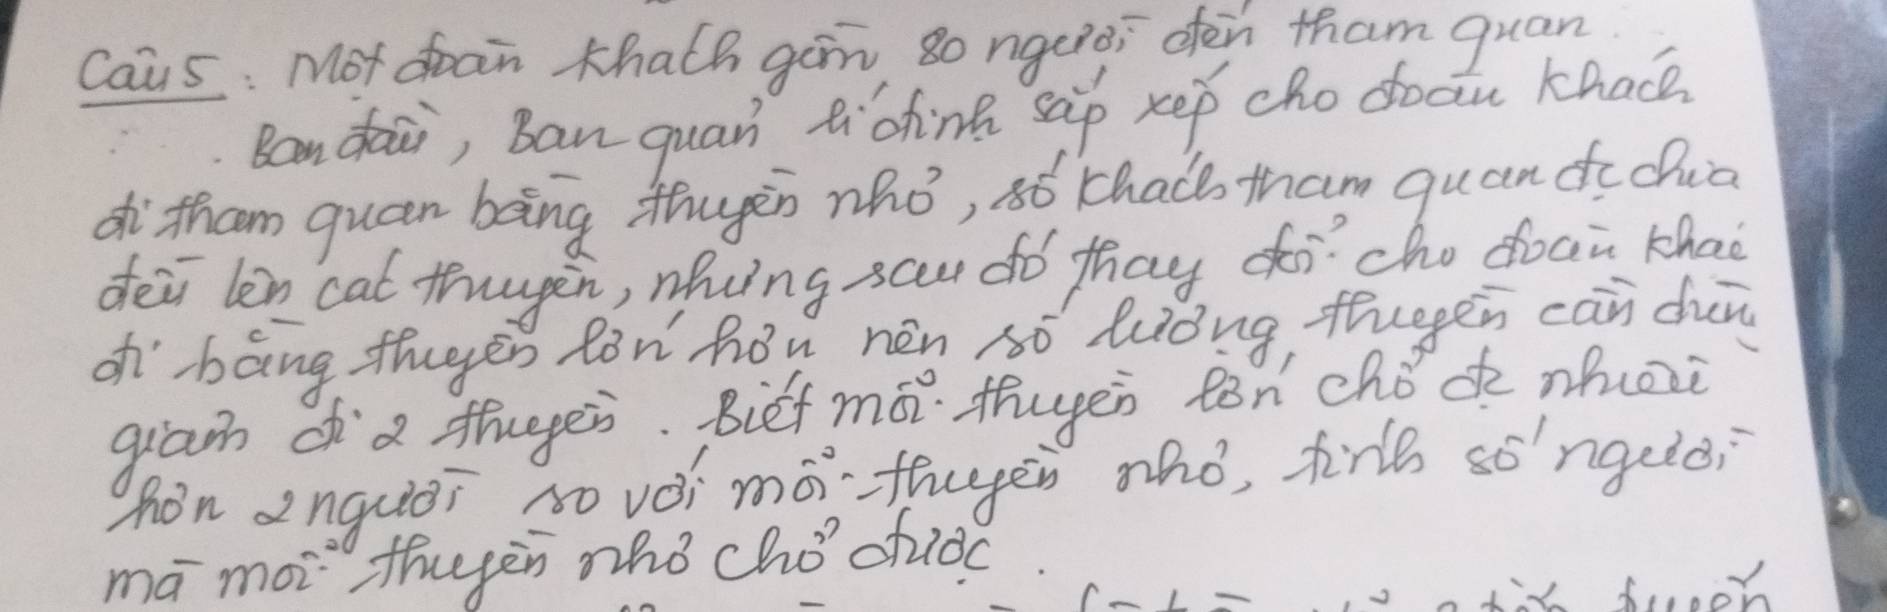 Câu 5: Một đoàn khách gồm 80 người đến tham quan.
Ban đầu, Ban quản lí định sắp xếp cho đoàn khách
đi tham quan bằng thuyền nhỏ, số khách tham quan đc chia
đều lên các thuyền, nhưng sau đó thay đổi cho đoàn khác
đi bằng thuyền lớn hơn nên số lượng thuyền cần dùng
giảm đi 2 thuyền. Biết mỗi thuyền lớn chở đc nhiều
hơn 2 người so với mỗi thuyền nhỏ, tính số người
mà mỗi thuyền nhỏ chở được.